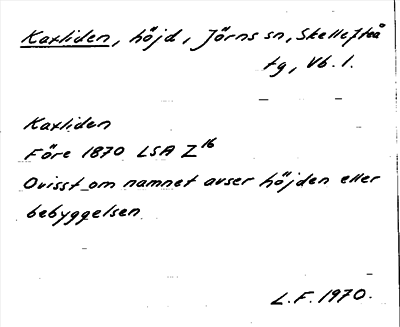 Kaxliden, höjd, Jörns sn, Skellefteå
tg, Vb. l.
Kaxliden
Före 1870 LSA Z16
Ovisst om namnet avser höjden eller
bebyggelsen
L.F. 1970.